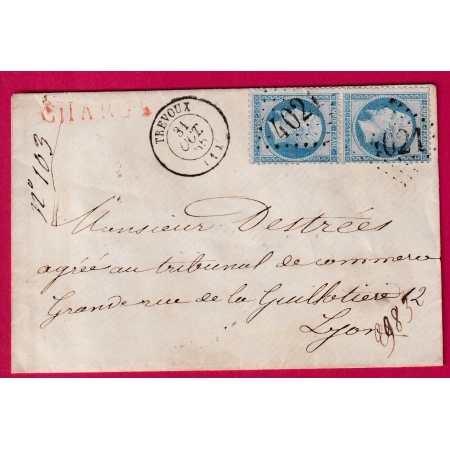 CHARGÉ
TREVOUX
31
OCT.
(1)
4021
4021
N° 103
Monsieur Destrées
agréé au tribunal de commerce
Grande rue de la Guillotière 12
Lyon